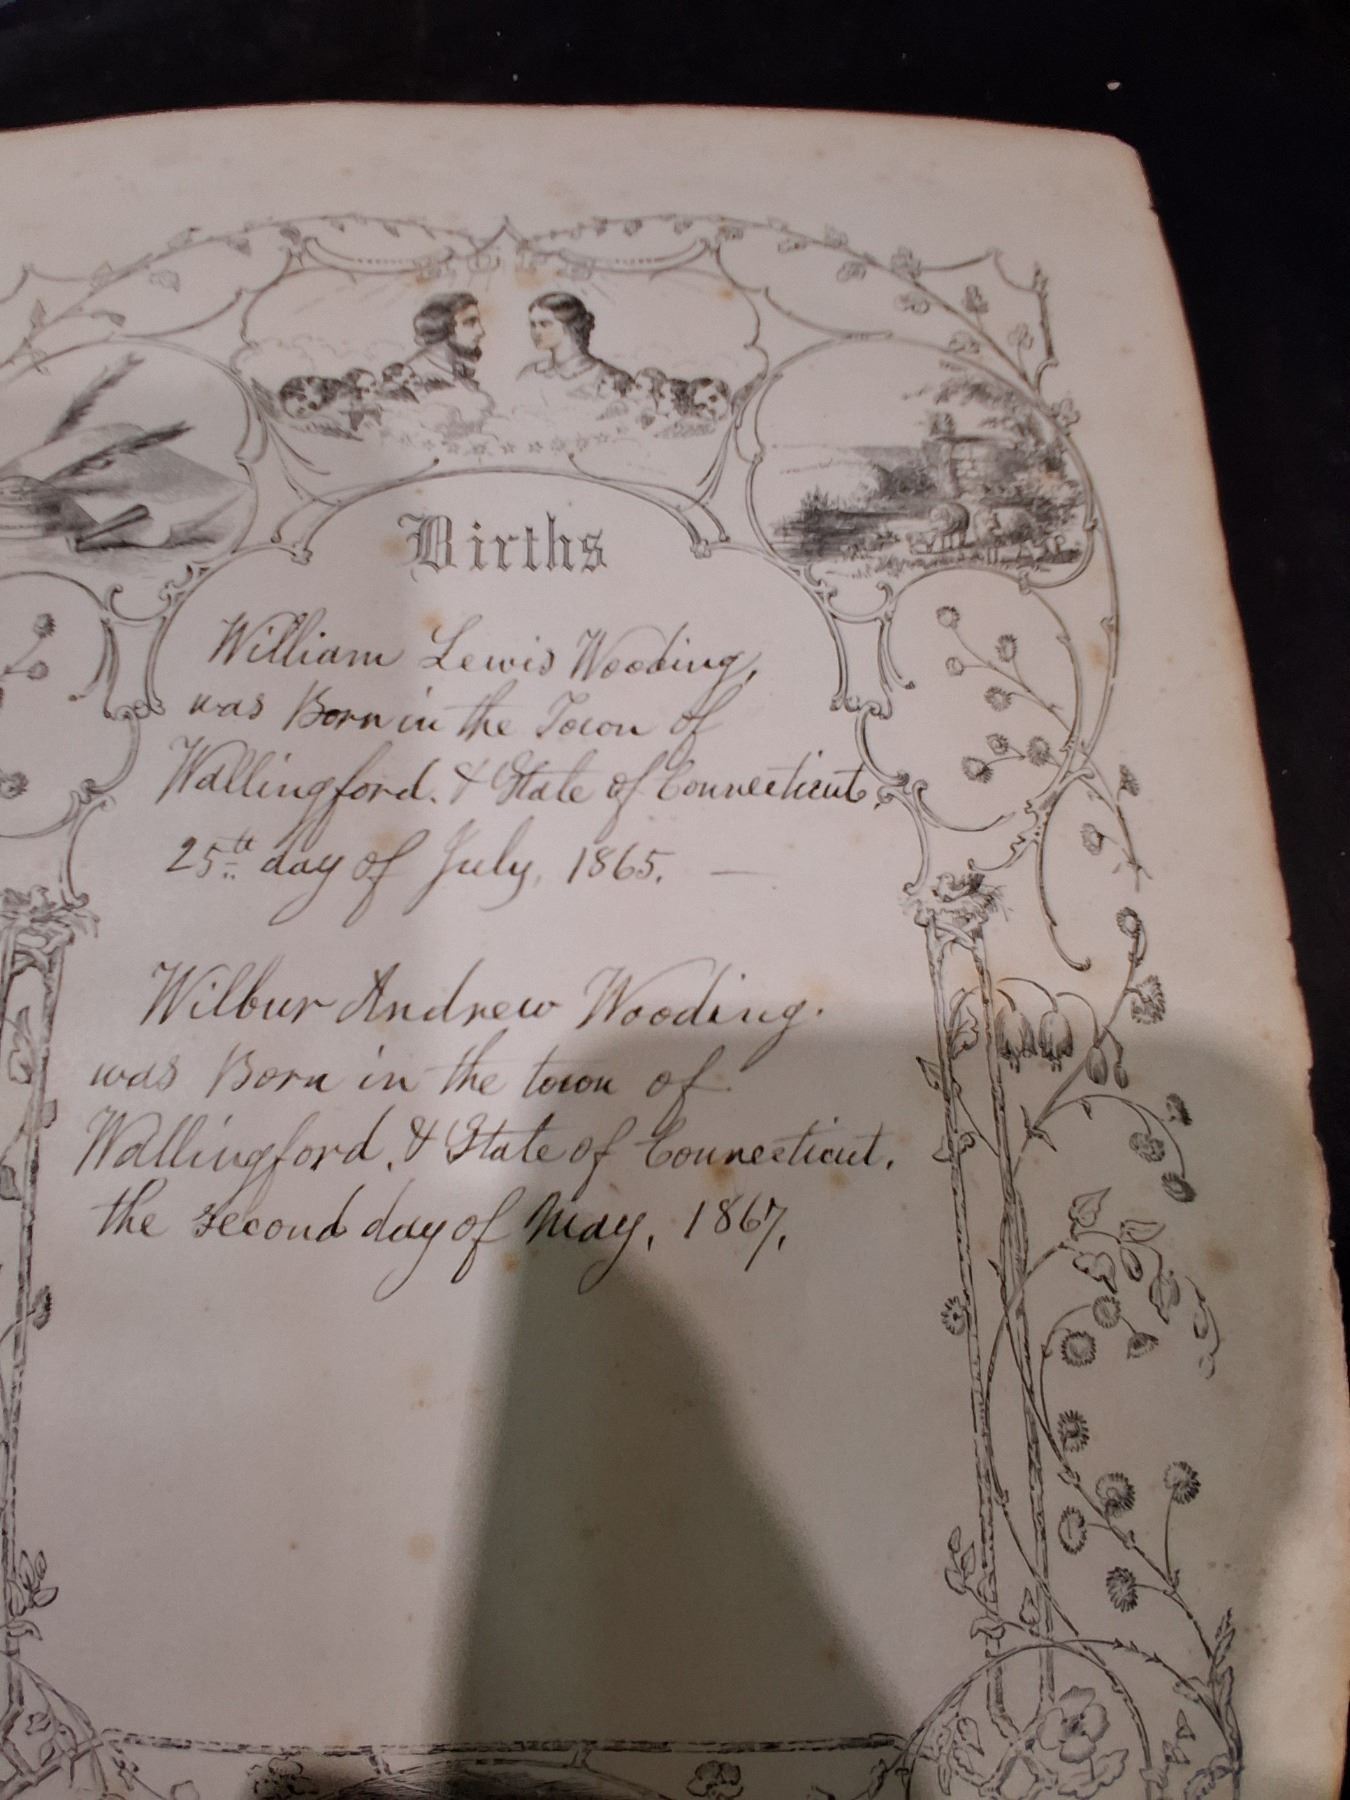 Births
William Lewis Wooding,
was Born in the Town of
Wallingford. & State of Connecticut,
25th day of July, 1865. —
Wilbur Andrew Wooding.
was Born in the town of
Wallingford, & State of Connecticut.
the second day of May, 1867,